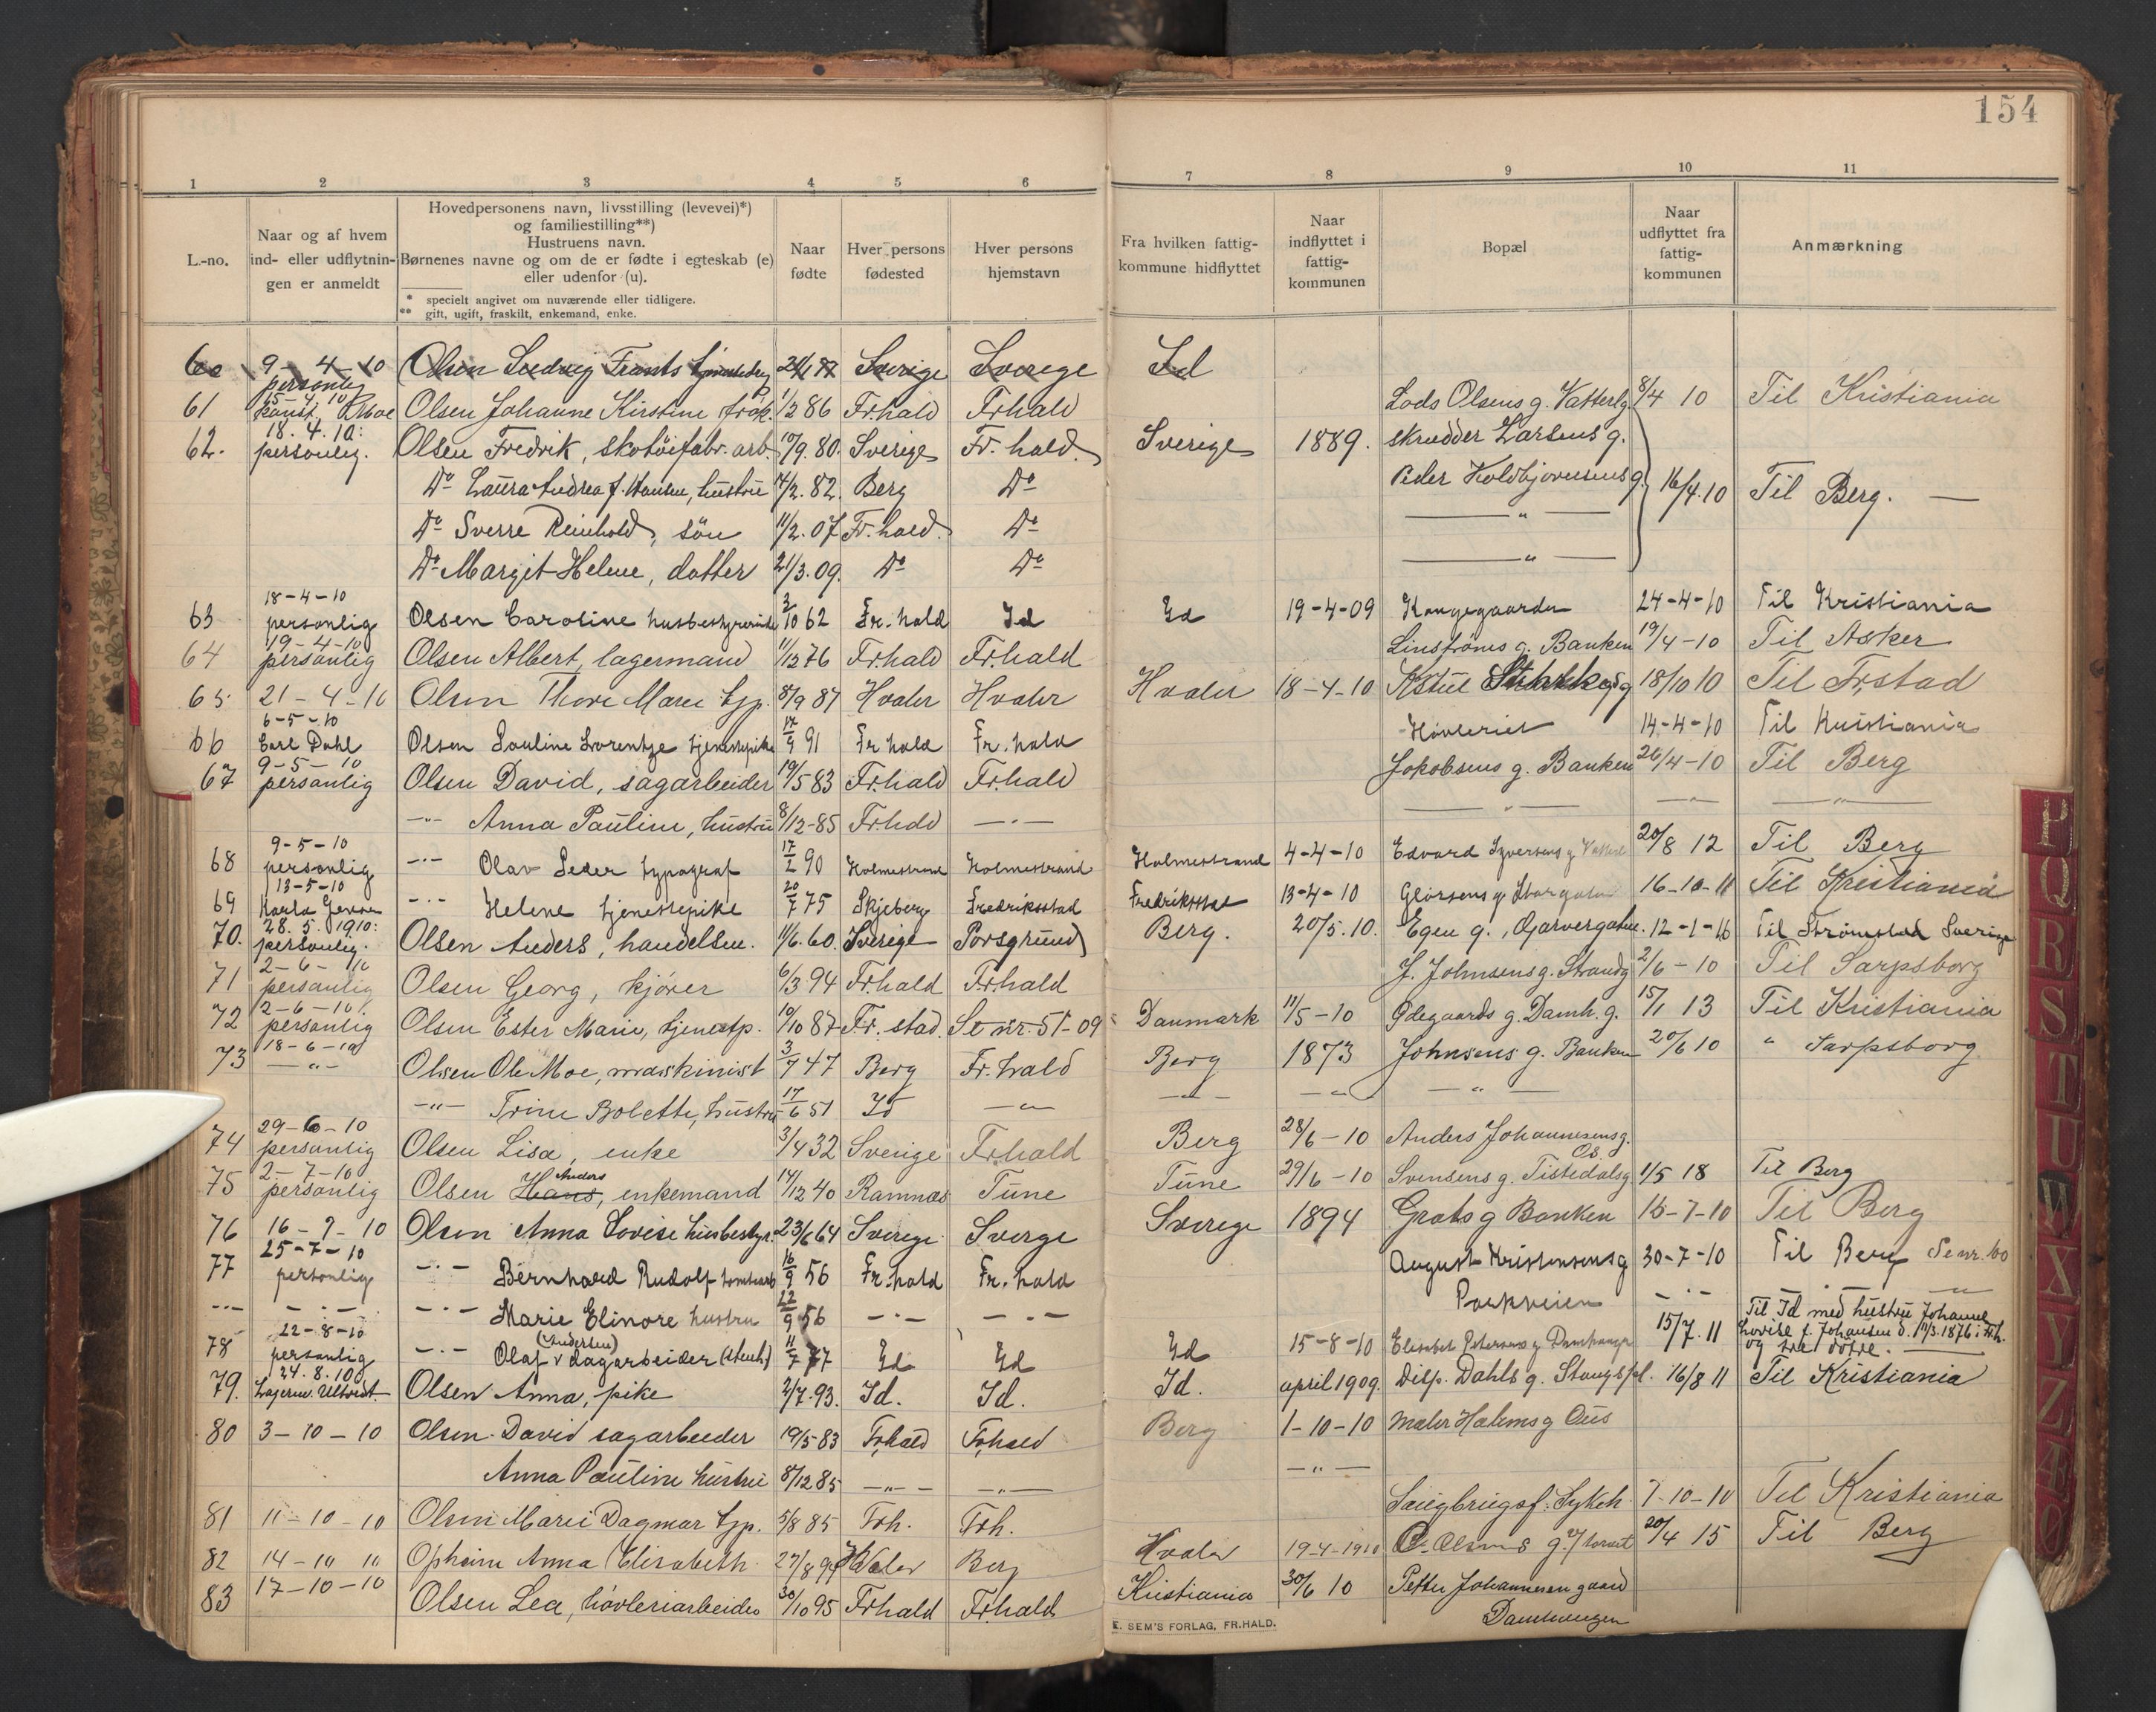 154
1 2 3 4 5 6 7 8 9 10 11
L.-no.
Naar og af hvem ind- eller udflytningen er anmeldt
Hovedpersonens navn, livsstilling (levevei)*)
og familiestilling**)
Hustruens navn.
Børnenes navne og om de er fødte i egteskab (e)
eller udenfor (u).
* specielt angivet om nuværende eller tidligere.
** gift, ugift, fraskilt, enkemand, enke.
Naar fødte
Hver persons fødested
Hver persons hjemstavn
Fra hvilken fattigkommune hidflyttet
Naar indflyttet i fattigkommunen
Bopæl
Naar udflyttet fra fattigkommunen
Anmærkning
60 9-4-10 personlig Olsen Ludvig Frants Sverige Sverige Id
61 15-4-10 Olsen Johanne Kirstine frøk. 1/2 86 Fr.hald Fr.hald Lods Olsens g. 8/4 10 Til Kristiania
62. 18.4.10: personlig. Olsen Fredrik, skotøifabr. arb. 10/9.80. Sverige Fr.hald. Sverige 1889. skrædder Larsens g.
Do Laura Andrea f. Hansen, hustru 14/2.82. Berg Do Peder Holdbjørnsens g. 16/4.10 Til Berg. —
Do Sverre Reinhold, søn 11/2.07 Fr.hald. Do — " —
Do Margit Helene, datter 21/3.09. Do Do — " —
63 18-4-10 personlig Olsen Caroline husbestyrerinde 2/10 62 Fr.hald Id Id 19-4-09 Kongegaarden 24-4-10 Til Kristiania
64 19-4-10 personlig Olsen Albert, lagermand 11/12 76 Fr.hald Fr.hald Linstrøms g. Banken 19/4-10 Til Asker
65 21-4-10 Olsen Thora Marie tjp. 8/9 87 Hvaler Hvaler Hvaler 18-4-10 18/10 10 Til Fr.stad
66 6-5-10 Carl Dahl Olsen Pauline Lorentze tjenestepike 17/9 91 Fr.hald Fr.hald Høvleriet 14-4-10 Til Kristiania
67 9-5-10 personlig Olsen David, sagarbeider 19/5 83 Fr.hald Fr.hald Jakobsens g. Banken 26/4-10 Til Berg
-"- Anna Pauline, hustru 8/12-85 Fr.hald -"- -"- -"- -"-
68 9-5-10 personlig -"- Olav Peder typograf 17/2 90 Holmestrand Holmestrand Holmestrand 4-4-10 Edvard Syversens g 20/8 12 Til Berg
69 13-5-10 Karla -"- Helene tjenestepike 20/7 75 Skjeberg Fredriksstad Fredriksstad 13-4-10 Storgaten 16-10-11 Til Kristiania
70. 28.5.1910: personlig. Olsen Anders, handelsm. 11/6.60. Sverige Porsgrund Berg. 20/5.10. Egen g., Garvergaten. 12-1-16 Til Strømstad Sverige
71 2-6-10 personlig Olsen Georg, kjører 6/3 94 Fr.hald Fr.hald J. Johnsens g. Strandg 2/6-10 Til Sarpsborg
72 2-6-10 personlig Olsen Ester Marie, tjenestp. 10/10 87 Fr.stad. Se nr. 51-09 Danmark 11/5-10 Ødegaards g. Damh. g. 15/1 13 Til Kristiania
73 18-6-10 -"- Olsen Ole Moe, maskinist 3/7 47 Berg Fr.hald Berg 1873 Johnsens g. Banken 20/6 10 " Sarpsborg
-"- Trine Bolette, hustru 17/6 51 Id -"- -"- -"- -"-
74 29-6-10 personlig Olsen Lisa, enke 3/4 32 Sverige Fr.hald Berg 28/6-10 Anders Johannesens g. Os.
75 2-7-10 personlig Olsen Hans, Anders enkemand 14/12 40 Ramnæs Tune Tune 29/6-10 Svensens g. Tistedalsg 1/5 18 Til Berg
76 16-7-10 Olsen Anna Lovise husbestyr. 23/6 64 Sverige Sverge Sverege 1894 Grabs g Banken 15-7-10 Til Berg
77 25-7-10 personlig -"- Bernhard Rudolf 16/9 56 Fr.hald Fr.hald August Kristensens g 30-7-10 Til Berg Se nr. 60
-"- -"- -"- Marie Elinore hustru 22/9 56 -"- -"- Parkveien -"- -"-
78 22-8-10 personlig -"- Olaf (Andersen) dagarbeider (stenh.) 11/7 77 Id Id Id 15-8-10 Elisabet Petersens g Damhaugen 15/7.11 Til Id med hustru Johanne Lovise f. Johansen d. 11/3.1876 i Frh. og tre døtre.
79. 24.8.10 Lagerm. Ultvedt. Olsen Anna, pike 2/7.93. Id. Id. Id. april 1909. Disp. Dahls g. Stangspl. 16/8 11 Til Kristiania
80 3-10-10 Olsen David sagarbeider 19/5 83 Fr.hald Fr.hald Berg 1-10-10 Maler Holms g Øus
Anna Pauline hustru 8/12 85 -"- -"- -"-
81 11-10-10 Olsen Marie Dagmar tjp. 5/8 85 Frh. Frh. Sykeh. 7-10-10 Til Kristiania
82 14-10 10 Opheim Anna Elisabeth 27/8 Hvaler Berg Hvaler 19-4-1910 O. Olsens g. v/torvet 20/4 15 Til Berg
83 17-10-10 Olsen Lea, høvleriarbeider 30/10 95 Fr.hald Fr.hald Kristiania 30/6 10 Petter Johannesen gaard Damhaugen
E. SEM'S FORLAG, FR.HALD.
P Q R S T U W X Y Z Æ Ø